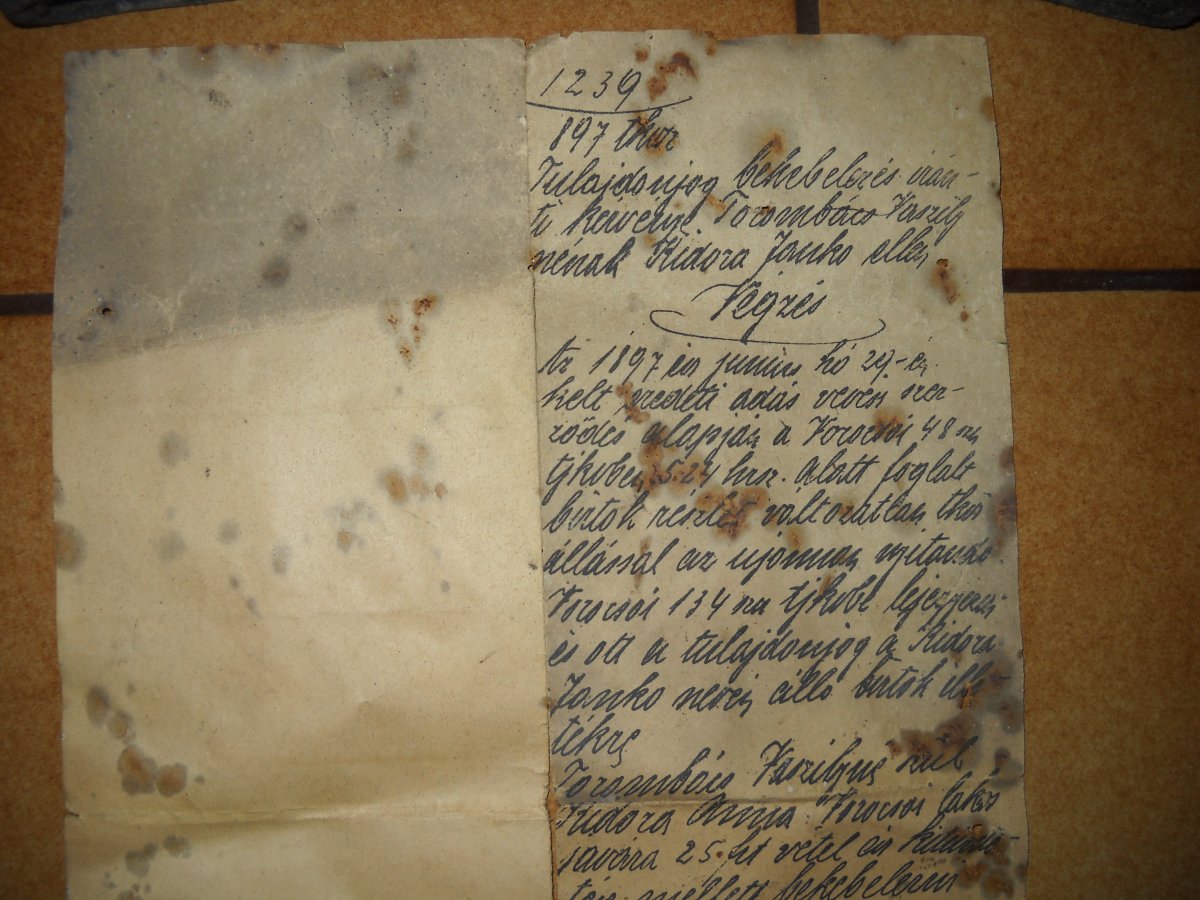 1239
897 tksz
Tulajdonjog bekebelezés irán-
ti kérvénye Torombács Vaszily
nénak Hidora Janko ellen
Végzés
Az 1897 év junius hó 29-én
kelt eredeti adás vevési szer-
ződés alapján a Vorocsói 48 sz
tjkvben 524 hrsz. alatt foglalt
birtok részlet változatlan tkvi
állással az ujonnan nyitandó
Vorocsói 134 sz tjkvbe lejegyezni
és ott a tulajdonjog a Hidora
Janko nevén álló birtok ille-
tékre
Torombács Vaszilyné szül
Hidora Anna Vorocsói lakós
javára 25 frt vétel ár
mellett bekebelezni